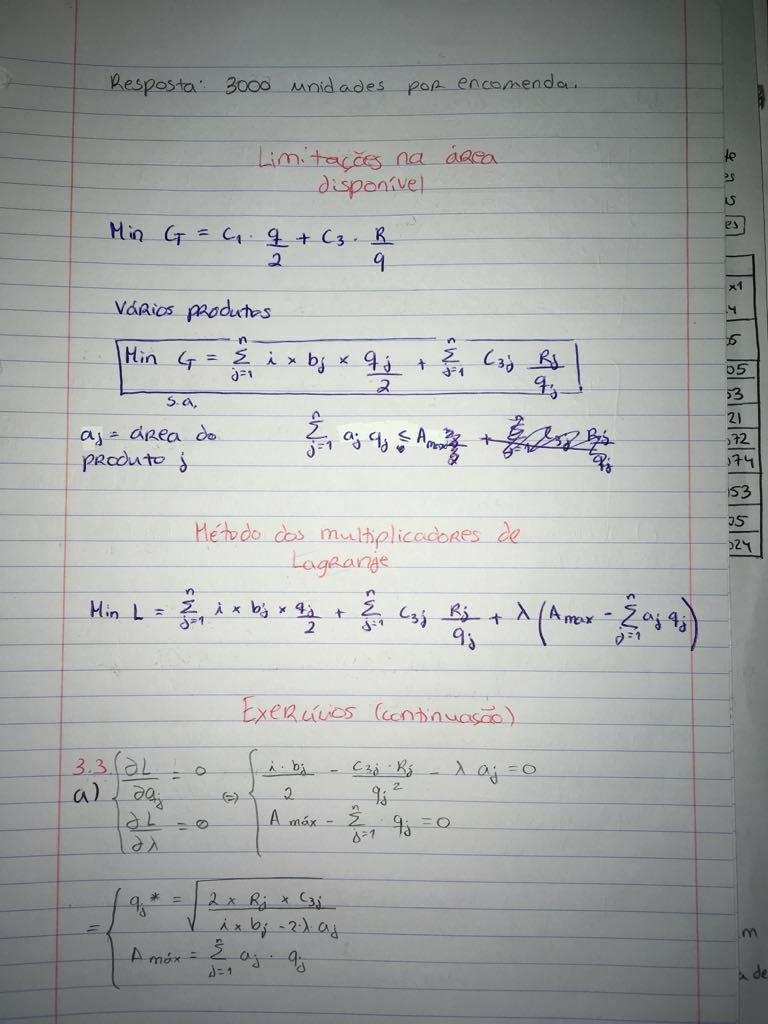 Resposta: 3000 unidades por encomenda.
Limitações na área
disponível
Min G = C1 · q/2 + C3 · R/q
Vários produtos
Min G = Σ_{j=1}^{n} i × bj × qj/2 + Σ_{j=1}^{n} C3j Rj/qj
s.a,
aj = área do
produto j
Σ_{j=1}^{n} aj qj ≤ Amax
Método dos multiplicadores de
Lagrange
Min L = Σ_{j=1}^{n} i × bj × qj/2 + Σ_{j=1}^{n} C3j Rj/qj + λ (Amax - Σ_{j=1}^{n} aj qj)
Exercícios (continuasão)
3.3. a) { ∂L/∂qj = 0 (=) { i·bj/2 - C3j·Rj/qj² - λ aj = 0
∂L/∂λ = 0 Amáx - Σ_{j=1}^{n} · qj = 0
= { qj* = √(2 × Rj × C3j / i × bj - 2·λ aj)
Amáx = Σ_{j=1}^{n} aj · qj
te
es
us
es
x1
05
53
21
072
074
053
05
024
m
a de